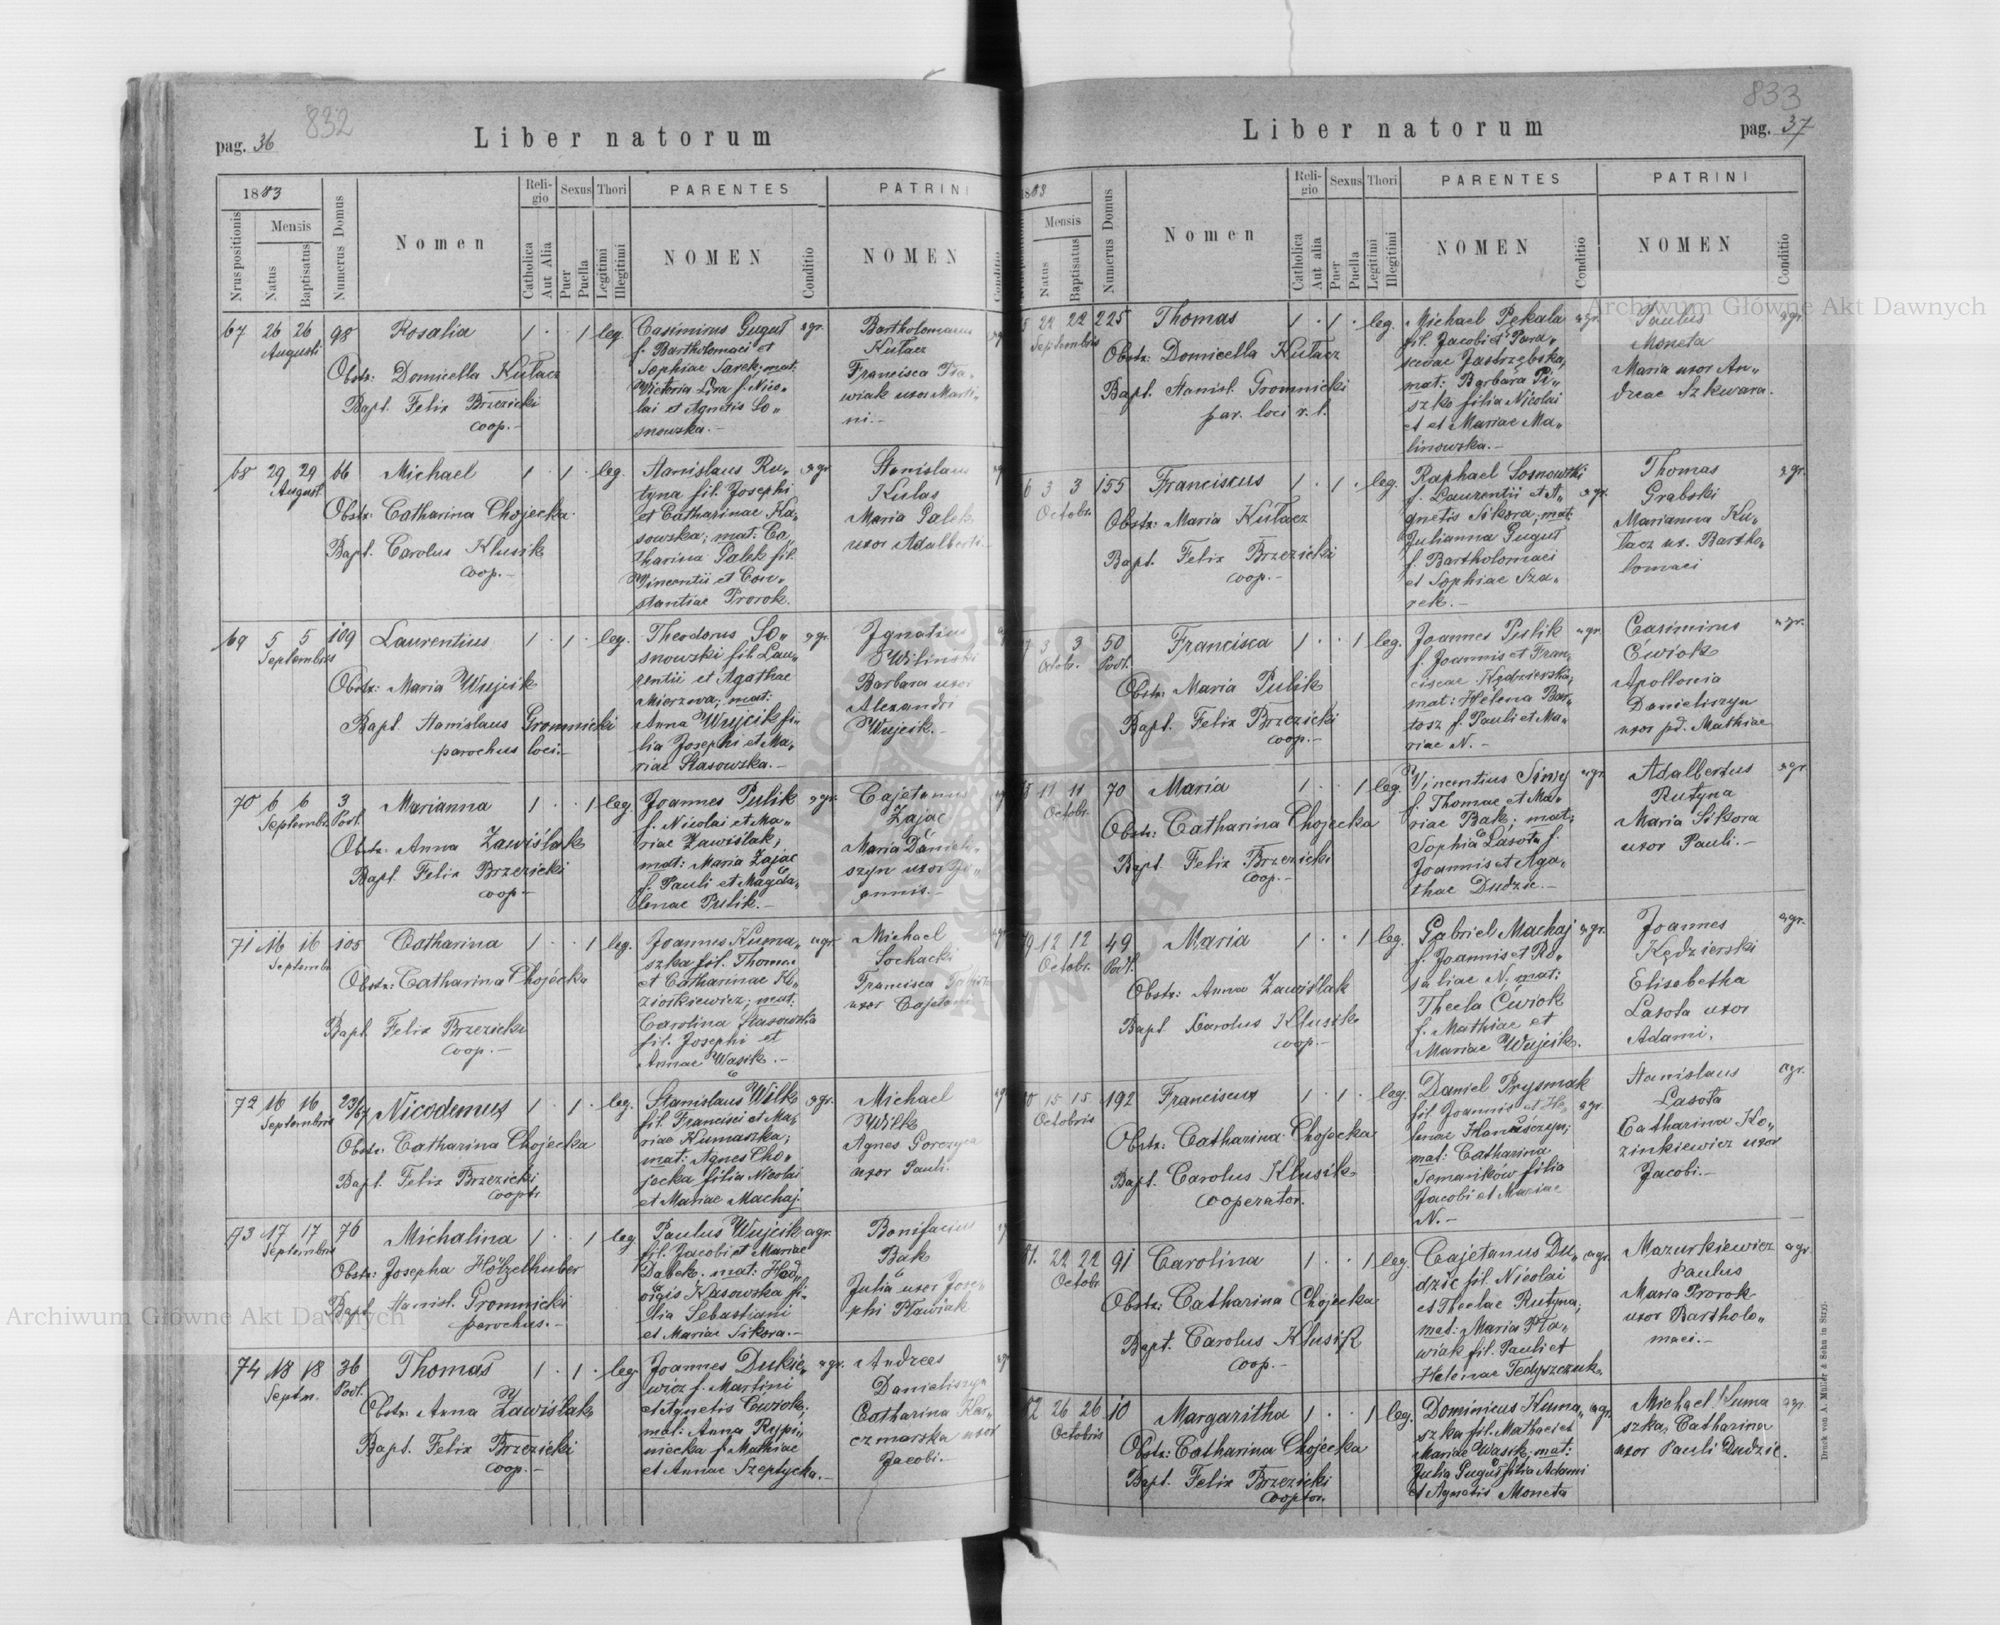 832
pag. 36
Liber natorum
1883
Nrus positionis
Mensis
Natus
Baptisatus
Numerus Domus
Nomen
Religio
Catholica
Aut Alia
Sexus
Puer
Puella
Thori
Legitimi
Illegitimi
PARENTES
NOMEN
Conditio
PATRINI
NOMEN
Conditio
67 26 26 98 Rosalia 1 · · 1 leg. Casimirus Guguł agr. Bartholomaeus
Augusti
f. Bartholomaei et
Kułacz
Obstr: Domicella Kułacz
Sophiae Sarek; mat:
Francisca Pta„
Bapt. Felix Brzezicki
Victoria Lira f. Nico„
wiak uxor Marti„
coop.–
lai et Agnetis So„
ni.–
snowska.–
68 29 29 66 Michael 1 · 1 · leg. Stanislaus Ru„ agr. Stanislaus
August.
tyna fil. Josephi
Kulas
Obstr: Catharina Chojecka
et Catharinae Ka„
Maria Galek
sowska; mat: Ca„
uxor Adalberti.–
Bapt. Carolus Klusik
tharina Galek fil.
coop.–
Vincentii et Con„
stantiae Prorok.
69 5 5 109 Laurentius 1 · 1 · leg. Theodorus So„ agr. Ignatius
Septembris
snowski fil. Lau„
Wiliński
rentii et Agathae
Barbara uxor
Obstr: Maria Wujcik
Mierzwa; mat:
Alexandri
Bapt. Stanislaus Gromnicki
Anna Wujcik fi„
Wujcik.–
parochus loci.–
lia Josephi et Ma„
riae Stasowska.–
70 6 6 3 Marianna 1 · · 1 leg. Joannes Pulik agr. Cajetanus
Septembr. Podł.
f. Nicolai et Ma„
Zając
Obstr. Anna Zawiślak
riae Zawiślak;
Maria Daniel„
mat: Maria Zając
szyn uxor Jo„
Bapt. Felix Brzezicki
f. Pauli et Magda„
annis.–
coop–
lenae Pulik.–
71 16 16 105 Catharina 1 · · 1 leg. Joannes Kuma„ agr. Michael
Septembr.
szka fil. Thomae
Sochacki
et Catharinae Ko„
Francisca
Obstr: Catharina Chojecka
ziońkiewicz; mat:
uxor Cajetani
Carolina Stasowska
Bapt. Felix Brzezicki
fil. Josephi et
coop.–
Annae Wąsik.–
72 16 16 23/67 Nicodemus 1 · 1 · leg. Stanislaus Wilk agr. Michael
Septembris
fil. Francisci et Ma„
Wilk
Obstr: Catharina Chojecka
riae Kumaszka;
Agnes Gorczyca
mat: Agnes Cho„
uxor Pauli.
Bapt. Felix Brzezicki
jecka filia Nicolai
cooptr
et Mariae Machaj.
73 17 17 76 Michalina 1 · · 1 leg. Paulus Wujcik agr. Bonifacius
Septembris
fil. Jacobi et Mariae
Bąk
Obstr: Josepha Hölzelhuber
Dąbek. mat: Hed„
Julia uxor Jose„
Bapt. Stanisl. Gromnicki
vigis Kąsowska fi„
phi Ptawiak
parochus.–
lia Sebastiani
et Mariae Sikora.–
74 18 18 36 Thomas 1 · 1 · leg. Joannes Dukie„ agr. Andreas
Septm. Podł.
wicz f. Martini
Danieliszyn
Obstr. Anna Zawiślak
et Agnetis Ćwiok;
Catharina Kar„
mat: Anna Rypi„
czmarska uxor
Bapt. Felix Brzezicki
niecka f. Mathiae
Jacobi.–
coop.–
et Annae Szeptycka.–
833
Liber natorum
pag. 37
1883
Mensis
Natus
Baptisatus
Numerus Domus
Nomen
Religio
Catholica
Aut alia
Sexus
Puer
Puella
Thori
Legitimi
Illegitimi
PARENTES
NOMEN
Conditio
PATRINI
NOMEN
Conditio
5 22 22 225 Thomas 1 · 1 · leg. Michael Pękala agr. Paulus agr.
Septembris
fil. Jacobi et Para„
Moneta
Obstr: Domicella Kułacz
scevae Jastrzębska,
Maria uxor An„
Bapt. Stanisl. Gromnicki
mat: Barbara Pi„
dreae Szkwara.
par. loci r. l.
szko filia Nicolai
et et Mariae Ma„
linowska.–
6 3 3 155 Franciscus 1 · 1 · leg. Raphael Sosnowski Thomas agr.
Octobr.
f. Laurentii et A„ agr.
Grabski
Obstr: Maria Kułacz
gnetis Sikora, mat:
Marianna Ku„
Julianna Guguł
łacz ux. Bartho„
Bapt. Felix Brzezicki
f. Bartholomaei
lomaei
coop.–
et Sophiae Sza„
rek.–
7 3 3 50 Francisca 1 · · 1 leg. Joannes Pulik agr. Casimirus agr.
Octobr. Podł.
f. Joannis et Fran„
Ćwiok
Obstr: Maria Pulik
ciscae Kędzierska;
Apollonia
mat: Helena Bar„
Danieliszyn
Bapt. Felix Brzezicki
tosz f. Pauli et Ma„
uxor pd. Mathiae
coop.–
riae N.–
8 11 11 70 Maria 1 · · 1 leg. Vincentius Siwy agr. Adalbertus agr.
Octobr.
f. Thomae et Ma„
Rutyna
Obstr: Catharina Chojecka
riae Bąk; mat:
Maria Sikora
Sophia Lasota f.
uxor Pauli.–
Bapt. Felix Brzezicki
Joannis et Aga„
Coop.–
thae Dudzic.–
79 12 12 49 Maria 1 · · 1 leg. Gabriel Machaj agr. Joannes agr.
Octobr. Podł.
f. Joannis et Ro„
Kędzierski
saliae N; mat:
Elisabetha
Obstr: Anna Zawiślak
Thecla Ćwiok
Lasota uxor
Bapt. Carolus Klusik
f. Mathiae et
Adami.
coop.–
Mariae Wujcik.
0 15 15 192 Franciscus 1 · 1 · leg. Daniel Prysmak Stanislaus agr.
Octobris
fil. Joannis et He„ agr.
Lasota
Obstr: Catharina Chojecka
mat: Catharina
Catharina Ko„
zinkiewicz uxor
Bapt. Carolus Klusik
Semaników filia
Jacobi.–
cooperator.
Jacobi et Mariae
N.–
81. 22 22 91 Carolina 1 · · 1 leg. Cajetanus Du„ agr. Mazurkiewicz agr.
Octobr.
dzic fil. Nicolai
Paulus
Obstr: Catharina Chojecka
et Theclae Rutyna;
Maria Prorok
mat: Maria Pta„
uxor Bartholo„
Bapt. Carolus Klusik
wiak fil. Pauli et
maei.–
coop.–
Helenae Tedyszczuk.
82 26 26 10 Margaritha 1 · · 1 leg. Dominicus Kuma„ agr. Michael Kuma agr.
Octobris
szka fil. Mathaei et
szka, Catharina
Obstr: Catharina Chojecka
Mariae Wąsik; mat:
uxor Pauli Dudzic.
Bapt. Felix Brzezicki
Julia Guguł filia Adami
Cooptor.
et Agnetis Moneta
Druck von A. Müller & Sohn in Stryj.
Archiwum Główne Akt Dawnych
Archiwum Główne Akt Dawnych